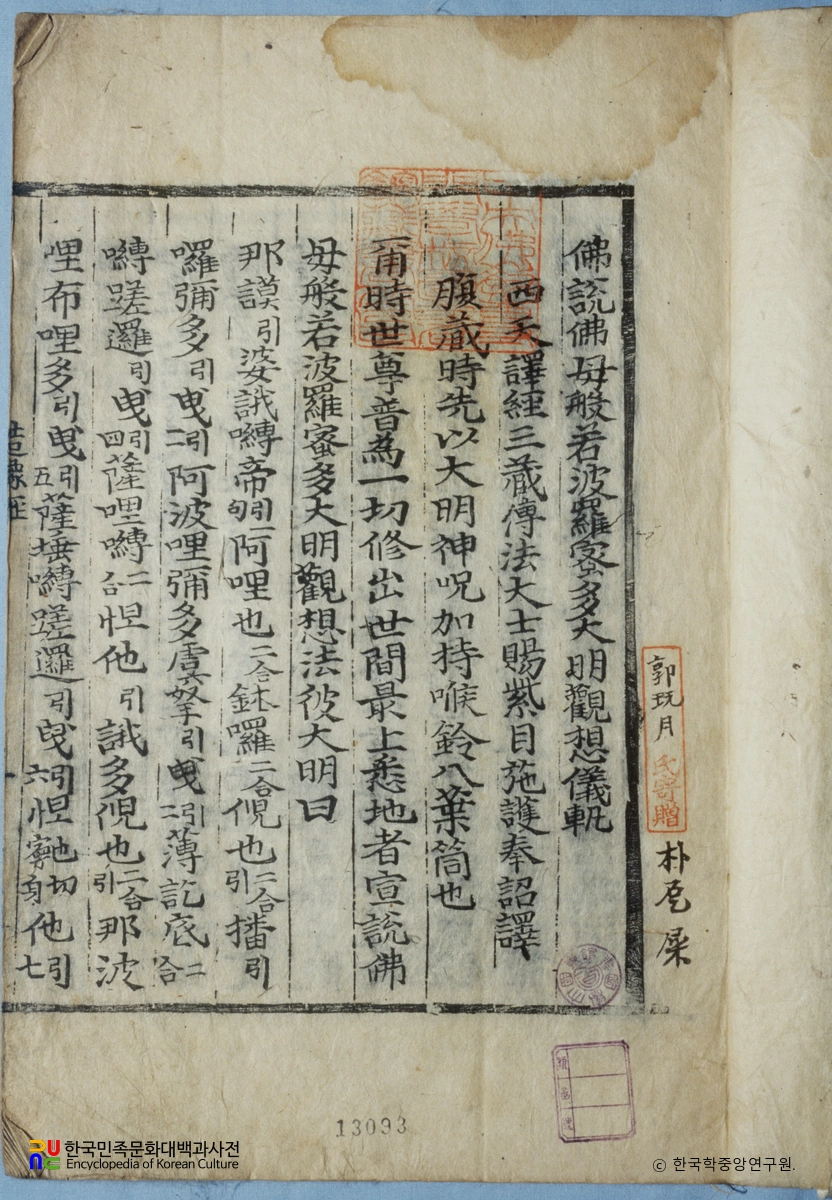 佛説佛母般若波羅蜜多大明觀想儀軌
西天譯經三藏傳法大士賜紫目茺護奉詔譯
腹蔵時先以大明神呪加持喉鈴八葉筒也
爾時世尊普為一切修出世間最上悉地者宣説佛
母般若波羅蜜多大明觀想法彼大明曰
那謨引婆誐嚩帝引句阿哩也二合鉢囉二合倪也二合引播引
囉彌多引曳引二阿波哩彌多虞拏引曳引二薄訖底二合
嚩蹉邏引曳引四薩哩嚩二合怛他引誐多倪也二合引那波
哩布哩多引曳引五薩埵嚩蹉邏引曳引六怛寧也切身他引七
造像経
郭玩月氏寄贈
朴
13093
한국민족문화대백과사전
Encyclopedia of Korean Culture
© 한국학중앙연구원.